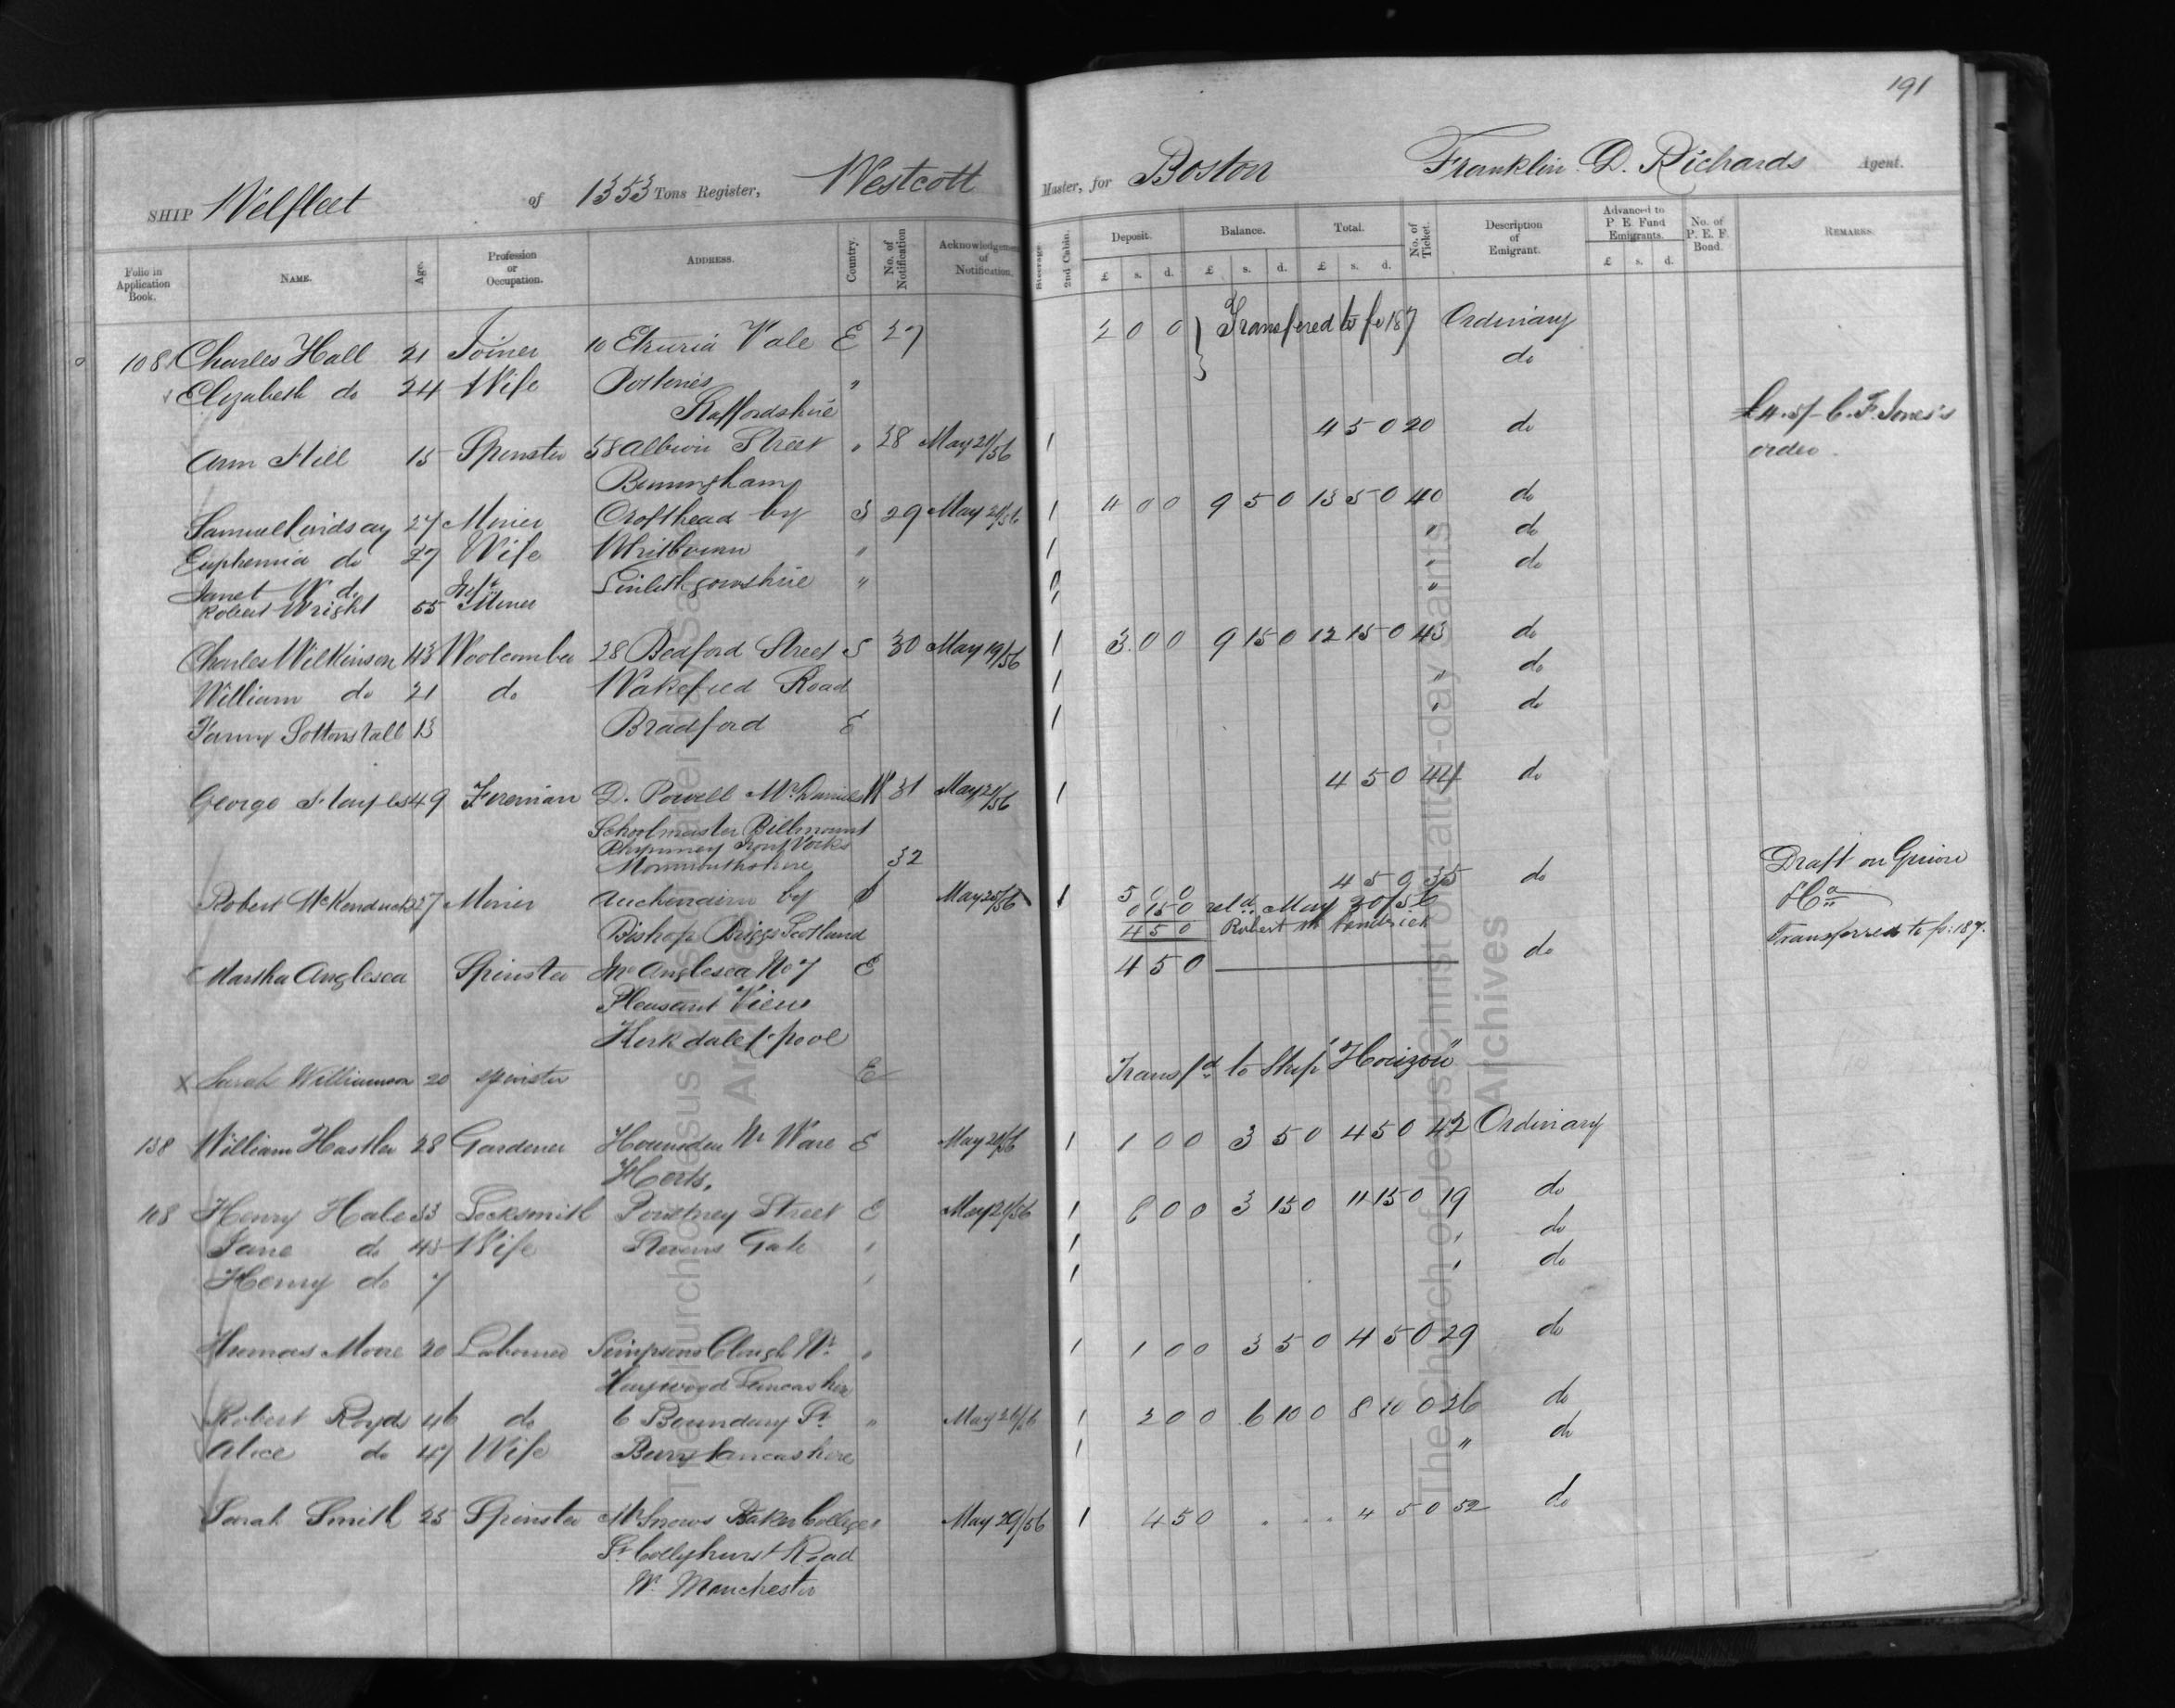 191
SHIP Welfleet of 1353 Tons Register, Westcott Master, for Boston Franklin D. Richards Agent.
Folio in Application Book. NAME. Age. Profession or Occupation. ADDRESS. Country. No. of Notification Acknowledgement of Notification. Steerage 2nd Cabin. Deposit. Balance. Total. No. of Ticket. Description of Emigrant. Advanced to P. E. Fund Emigrants. No. of P. E. F. Bond. REMARKS.
£ s. d. £ s. d. £ s. d. £ s. d.
108 Charles Hall 21 Joiner 10 Etruria Vale E 27 2 0 0 Transfered to fo 187 Ordinary
Elizabeth do 24 Wife Potteries " do
Staffordshire
Ann Hill 15 Spinster 58 Albion Street " 28 May 21/56 1 4 5 0 20 do £4.5/- C. F. Jones's
Birmingham order.
Samuel Lindsay 27 Miner Crofthead by S 29 May 21/56 1 4 0 0 9 5 0 13 5 0 40 do
Euphemia do 27 Wife Whitburn " 1 " do
Janet W do Inft Linlithgowshire " 0 " do
Robert Wright 55 Miner 1 "
Charles Wilkinson 43 Woolcomber 28 Bedford Street S 30 May 19/56 1 3 0 0 9 15 0 12 15 0 43 do
William do 21 do Wakefield Road 1 " do
Fanny Sottonstall 13 Bradford E 1 " do
George Staples 49 Fireman D. Powell Mr Daniels W 31 May 21/56 1 4 5 0 44 do
Schoolmaster Billmount
Rhymney Iron Works
Monmouthshire 32
Robert McKendrick 27 Miner Auchendirn by S May 25/56 1 5 0 0 4 5 0 35 do Draft on Guion
0 15 0 retd May 30/56 & Co
Bishop Briggs Scotland 4 5 0 Robert Mc Kendrick Transferred to fo: 187.
Martha Anglesea Spinster Mr Anglesea No 7 E 4 5 0 do
Pleasant View
Kirkdale L'pool
x Sarah Williamson 20 Spinster E Transfd to Ship "Horizon"
138 William Hastler 28 Gardener Hounsden Nr Ware E May 21/56 1 1 0 0 3 5 0 4 5 0 42 Ordinary
Herts.
108 Henry Hale 33 Locksmith Poultney Street E May 21/56 1 8 0 0 3 15 0 11 15 0 19 do
Jane do 45 Wife Stevens Gate " 1 " do
Henry do 7 " 1 " do
Thomas Moore 20 Labourer Simpsons Clough Nr " 1 1 0 0 3 5 0 4 5 0 29 do
Haywood Lancashire
Robert Royds 46 do 6 Boundary St " May 26/56 1 2 0 0 6 10 0 8 10 0 26 do
Alice do 47 Wife Bury Lancashire 1 " do
Sarah Smith 25 Spinster Mr Snows Baker College " May 29/56 1 4 5 0 4 5 0 52 do
St Collyhurst Road
Nr Manchester
The Church of Jesus Christ of Latter-day Saints
Archives
The Church of Jesus Christ of Latter-day Saints
Archives